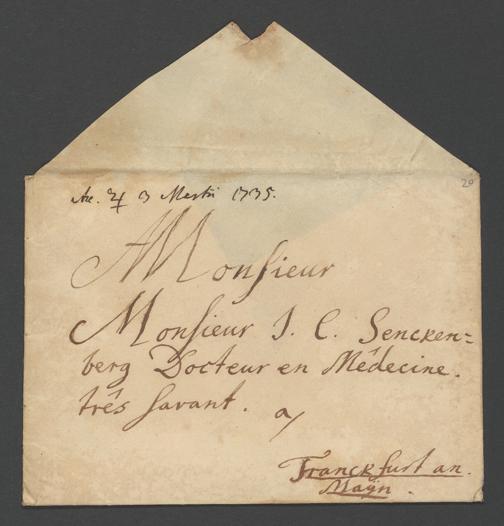 Acc. ♃ 3 1735.
20
Monsieur
Monsieur J. C. Sencken=
berg Docteur en Médecine.
trés savant. a
Franckfurt an.
Maÿn.